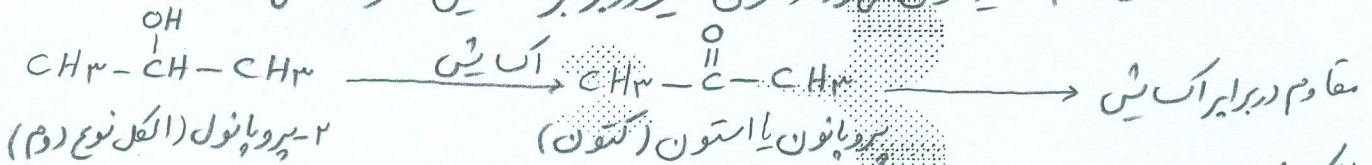 OH
CH۳ - CH - CH۳ اکسایش CH۳ - C - CH۳ مقاوم در برابر اکسایش
O
۲-پروپانول (الکل نوع دوم) پروپانون یا استون (کتون)